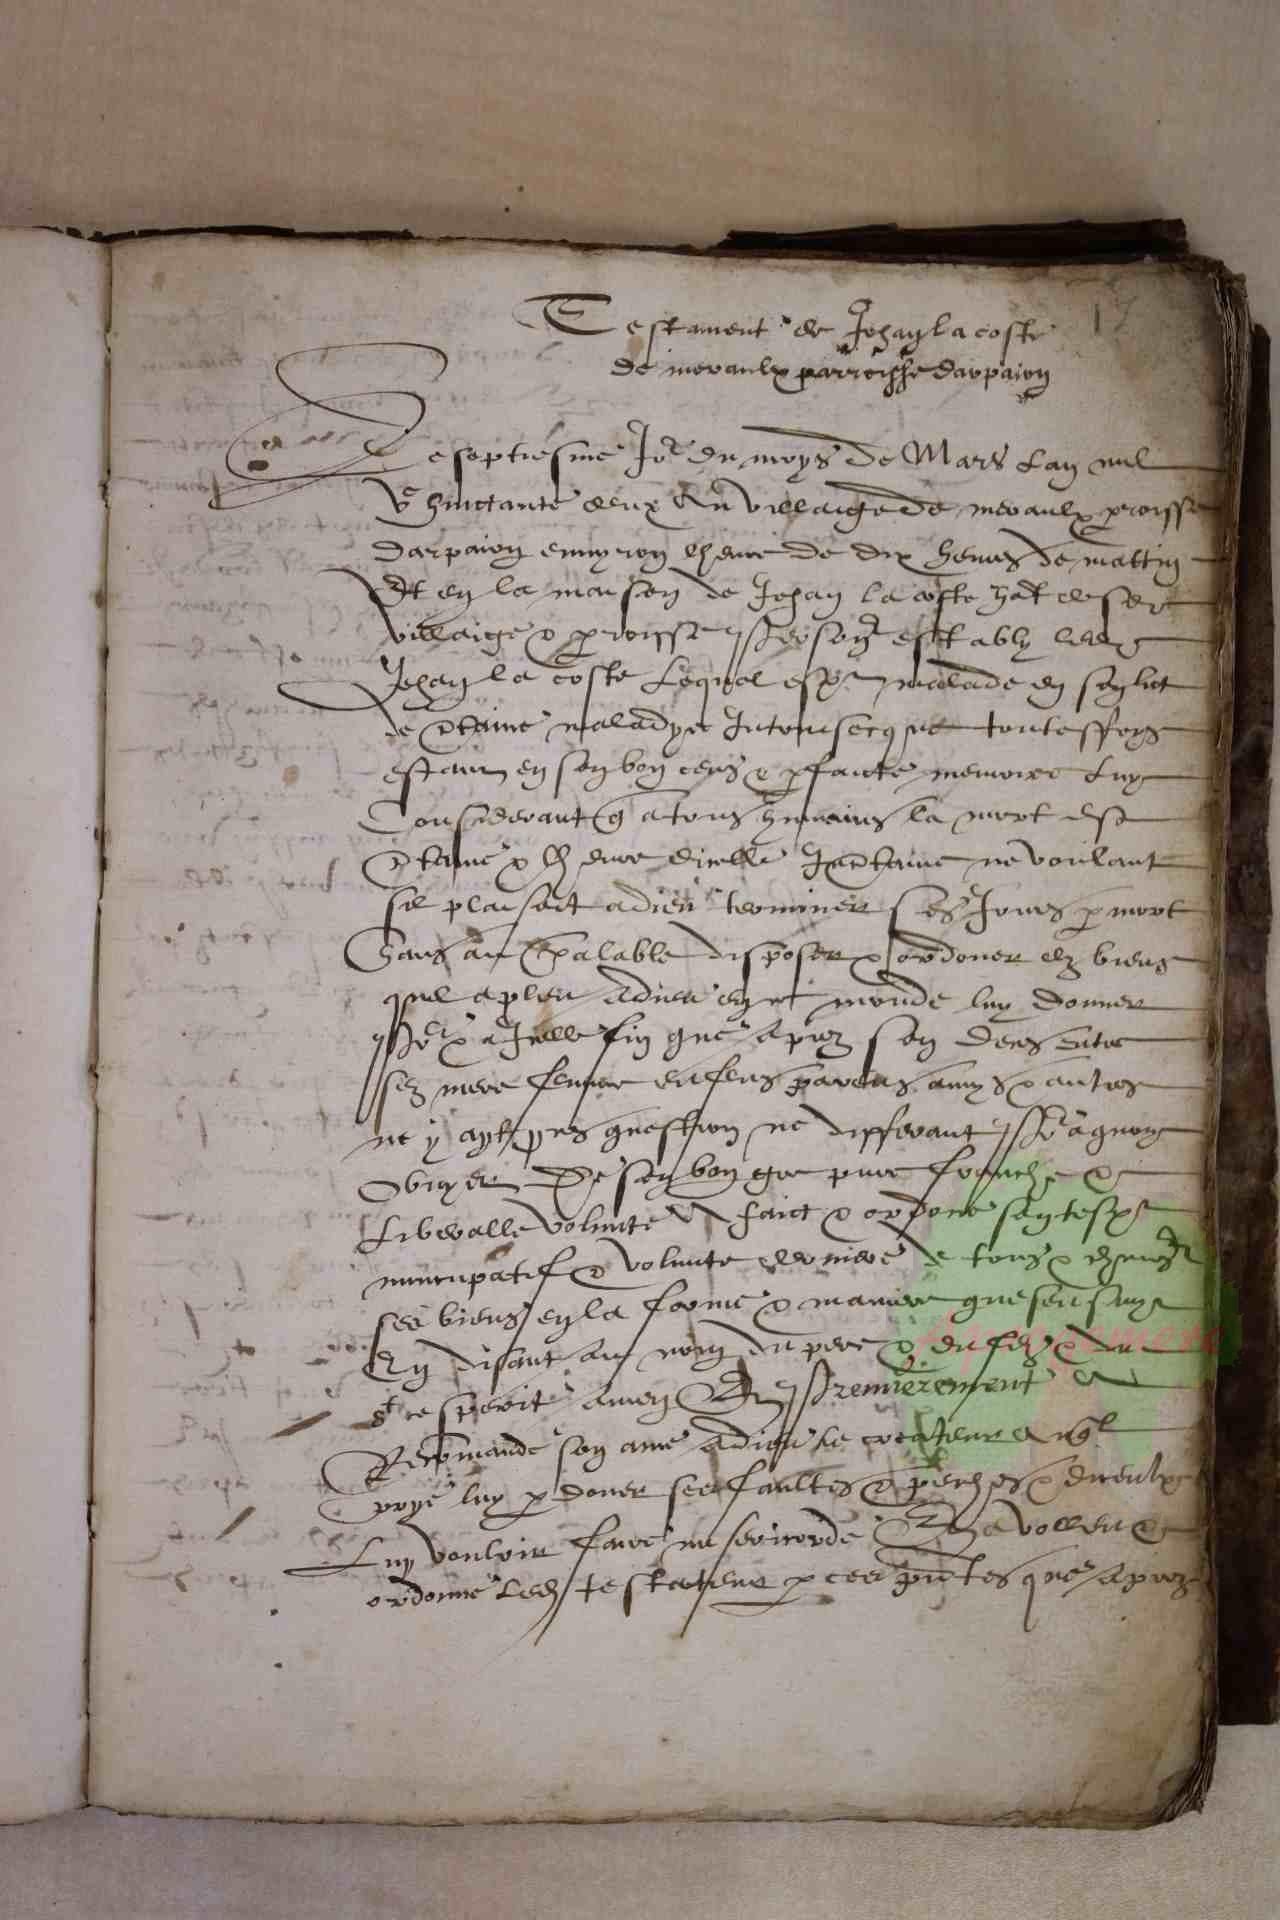 17
Testament de Jehan la coste
de meraulx parroisse darpaion
Le septiesme Jor du moys de Mars Lan mil
vc huictante deux Au villaige de meraulx proisse
darpaion envyron lheure de dix heures de mattin
Et en la maison de Jehan la coste hat desd
villaige & proisse personelt estably led
Jehan la coste Lequel malade en son lict
de certaine maladye Intrinsecque touteffoys
estant en son bon cens & pfaicte memoire Luy
Considerant q a tous humains la mort est
certaine & lheure dicelle Incertaine ne voulant
sil plaisoit a dieu terminer ses Jours p mort
sans au prealable disposer & ordoner des biens
quil a pleu a dieu en ce monde luy donner
Pour & a Icelle fin que apres son deces entre
ses mere femme enfens parens amys & autres
ne y ayt question ne differant
obvyer De son bon gre pure franche &
Liberalle volunte A faict & ordone son test
nuncupatif & volunte derniere de tous &
ses biens en la forme & maniere que sensuyt
En disant au nom du pere & du filz & du
st esperit amen Et Premierement A
Recomande son ame a dieu le createur Auql
prye luy pdoner ses faultes & peches & diceulx
Luy vouloir faire misericorde Et a vollu &
ordonne led testateur p ces pntes que apres
Apogemere